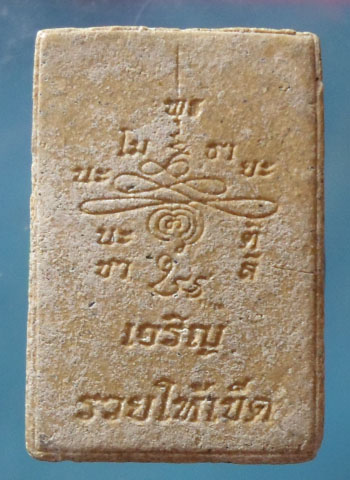 พุธ
โม ธา
นะ ยะ
นะ
ชา
เจริญ
รวยให้เข็ด